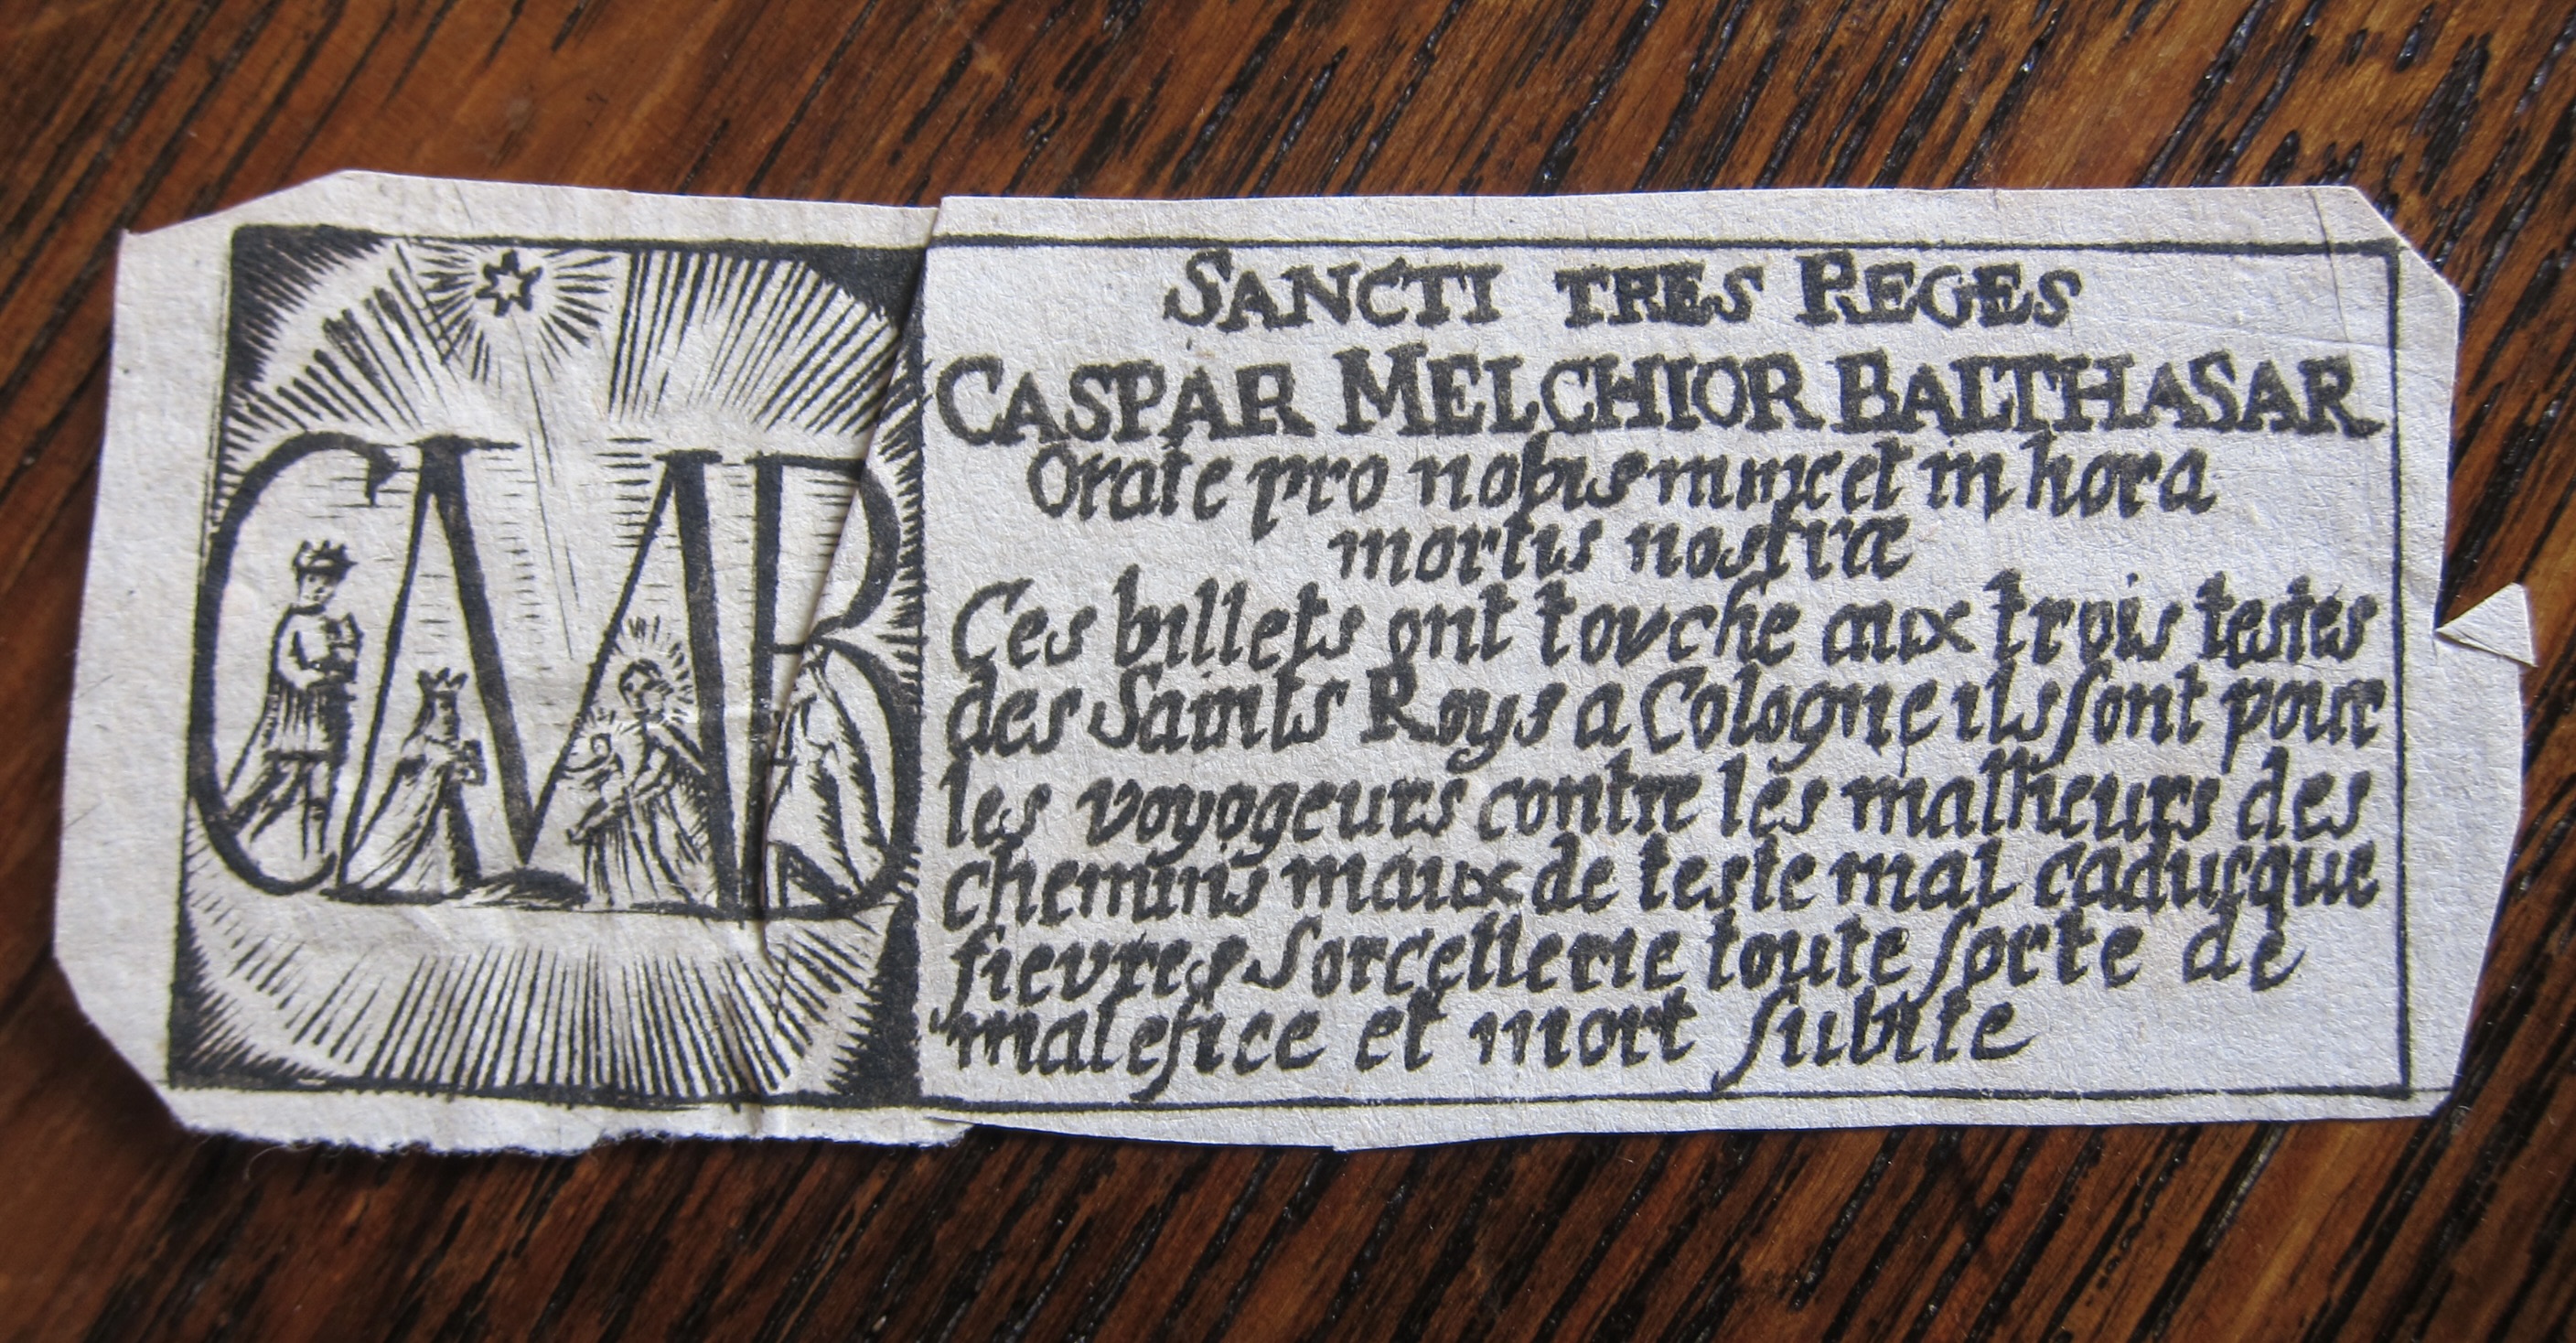 CMB
SANCTI TRES REGES
CASPAR MELCHIOR BALTHASAR
Orate pro nobis nunc et in hora
mortis nostræ
Ces billets ont touche aux trois testes
des Saints Roys a Cologne ils sont pour
les voyogeurs contre les malheurs des
chemins maux de teste mal caducque
fievres sorcellerie toute sorte de
malefice et mort subite